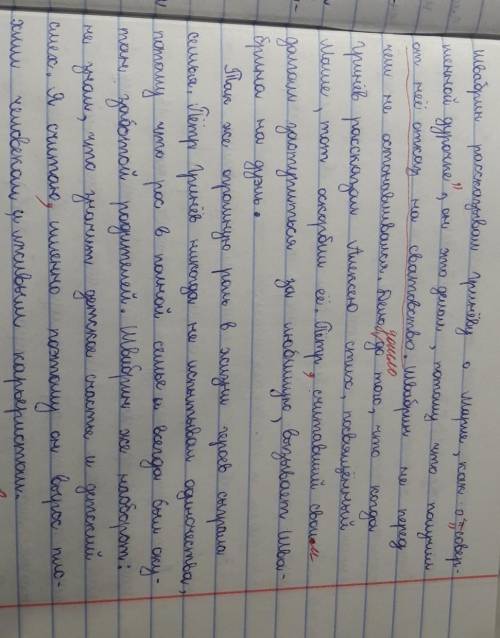 Швабрин рассказывал Гринёву о Марье, как о „совер-
шенной дурочке", он это делал, потому что получил
от неё отказ на сватовство. Швабрин не перед
чем не останавливался. Дело дошло до того, что когда
Гринёв рассказал Алексею стих, посвящённый
Маше, тот оскорбил её. Пётр, считавший своим
долгом заступиться за любимую, вызывает Шва-
брина на дуэль.
Так же огромную роль в жизни героев сыграла
семья. Пётр Гринёв никогда не испытывал одиночества,
потому что рос в полной семье и всегда был оку-
тан заботой родителей. Швабрин же наоборот:
не знал, что значит детское счастье и детский
смех. Я считаю, именно поэтому он вырос пло-
хим человеком, и лживым карьеристом.